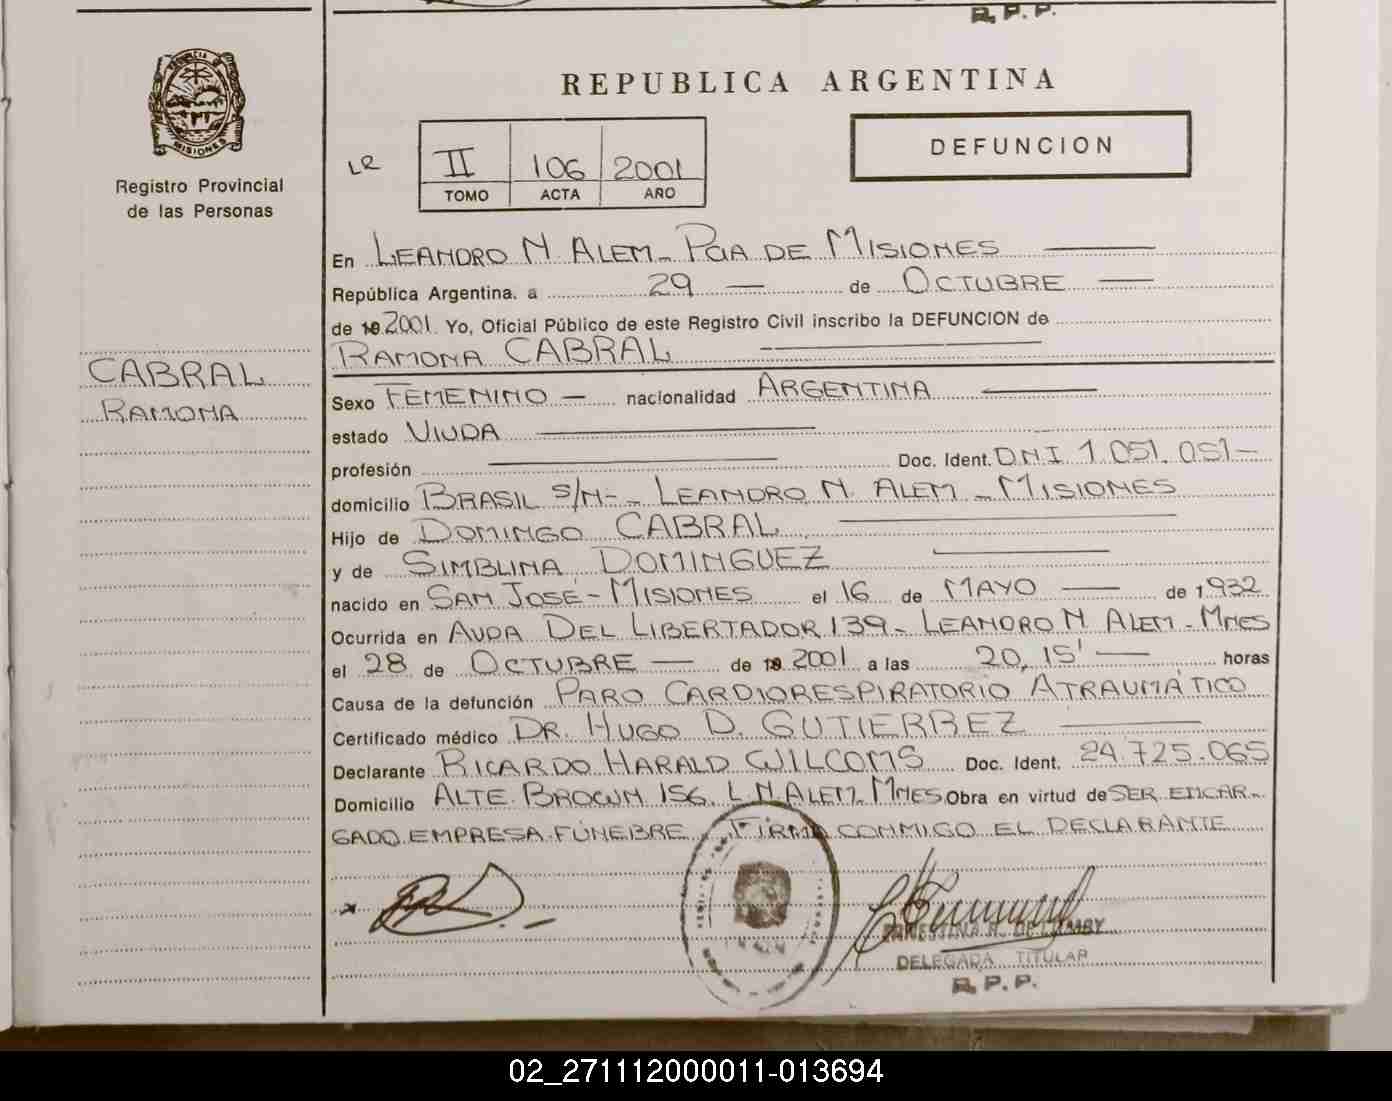 R. P. P.
PROVINCIA DE
MISIONES
Registro Provincial
de las Personas
REPUBLICA ARGENTINA
DEFUNCION
LR II 106 2001
TOMO ACTA AÑO
En LEANDRO N. ALEM - PCIA DE MISIONES
República Argentina, a 29 de OCTUBRE
de 19 2001 Yo, Oficial Público de este Registro Civil inscribo la DEFUNCION de
RAMONA CABRAL
CABRAL
RAMONA
Sexo FEMENINO - nacionalidad ARGENTINA
estado VIUDA
profesión Doc. Ident. D.N.I 1.051.051-
domicilio BRASIL S/N - LEANDRO N. ALEM - MISIONES
Hijo de DOMINGO CABRAL
y de SIMBLINA DOMINGUEZ
nacido en SAN JOSÉ - MISIONES el 16 de MAYO de 1932
Ocurrida en AVDA DEL LIBERTADOR 139 - LEANDRO N ALEM - MNES
el 28 de OCTUBRE de 19 2001 a las 20,15' horas
Causa de la defunción PARO CARDIORESPIRATORIO ATRAUMÁTICO
Certificado médico DR. HUGO D. GUTIERREZ
Declarante RICARDO HARALD WILCOMS Doc. Ident. 24.725.065
Domicilio ALTE. BROWN 156. L.N.ALEM-MNES Obra en virtud de SER ENCAR-
GADO EMPRESA FÚNEBRE. FIRMA CONMIGO EL DECLARANTE
DELEGADA TITULAR
R. P. P.
02_271112000011-013694